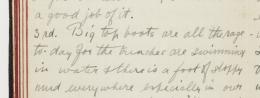 a good job of it.
3rd. Big top boots are all the rage
to-day for the trenches are swimming
in water & there is a foot of sloppy
mud everywhere especially in our